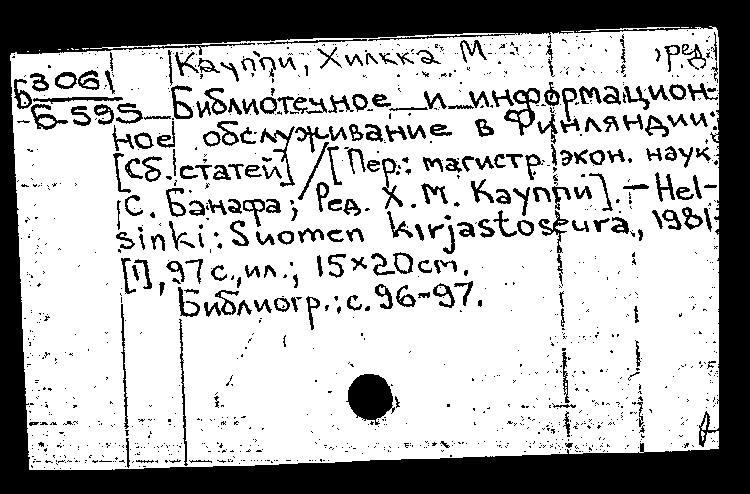 Кауппи, Хилкка М. , ред.
Б3061
Б-595
Библиотечное и информацион-
ное обслуживание в Финляндии:
[Сб. статей] / [Пер.: магистр экон. наук
С. Банафа; Ред. Х. М. Кауппи]. — Hel-
sinki: Suomen kirjastoseura, 1981.
[1], 97 с., ил.; 15×20 cm.
Библиогр.: с. 96-97.